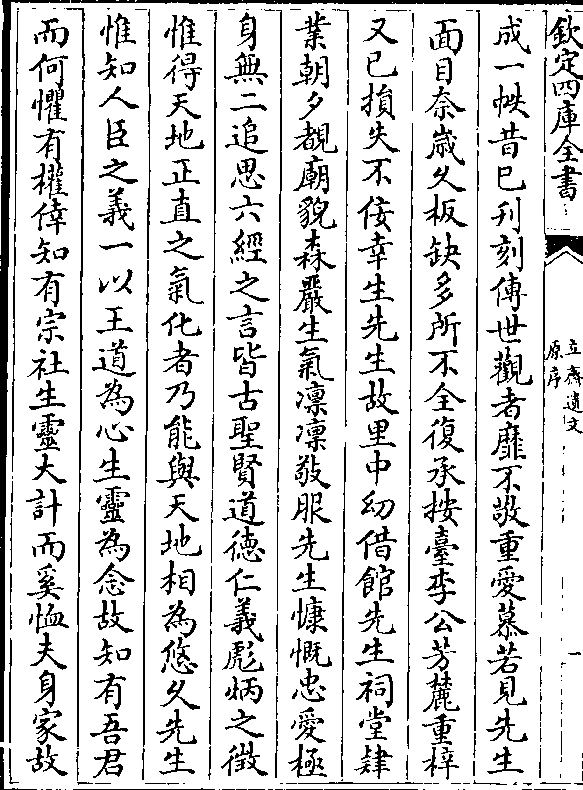 欽定四庫全書
立齋遺文
原序
一
成一帙昔已刊刻傳世觀者靡不敬重愛慕若見先生
面目奈歳久板缺多所不全復承按臺李公芳麓重梓
又已損失不佞幸生先生故里中幼借館先生祠堂肄
業朝夕覩廟貌森嚴生氣凛凛敬服先生慷慨忠愛極
身無二追思六經之言皆古聖賢道德仁義彪炳之徴
惟得天地正直之氣化者乃能與天地相為悠久先生
惟知人臣之義一以王道為心生靈為念故知有吾君
而何懼有權倖知有宗社生靈大計而奚恤夫身家故